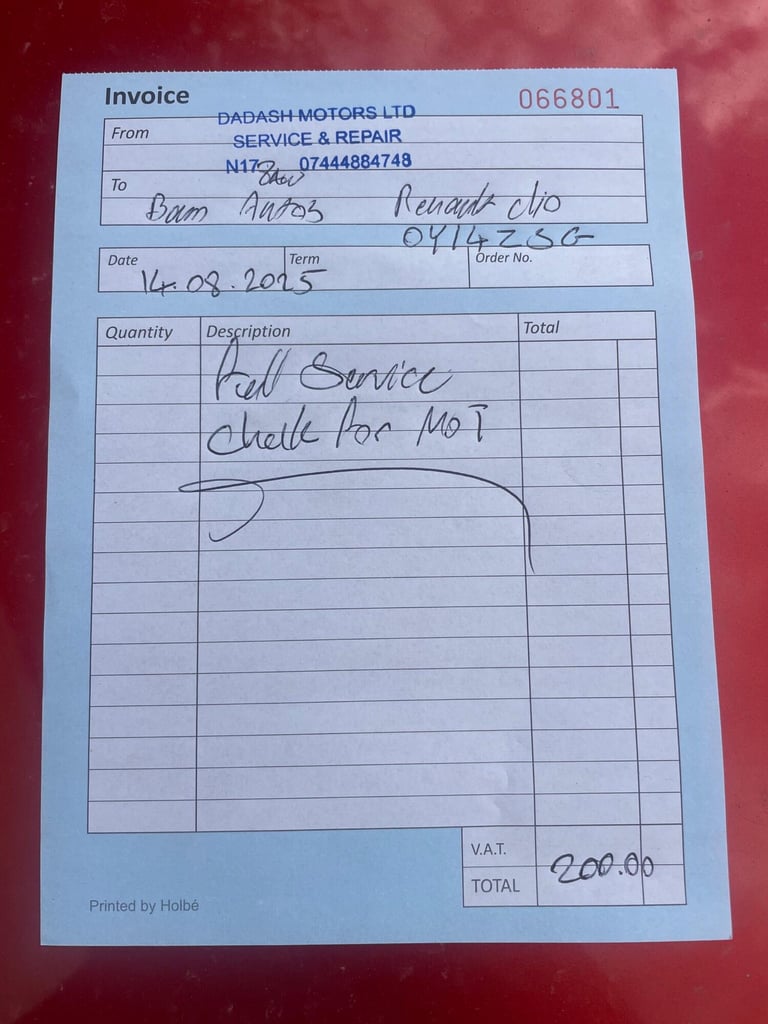 Invoice
066801
From
DADASH MOTORS LTD
SERVICE & REPAIR
N17 07444884748
To
Bam Autos Renault clio
OY14ZSG
Date Term Order No.
14.08.2025
Quantity Description Total
Full Service
Check For MOT
V.A.T.
200.00
TOTAL
Printed by Holbé